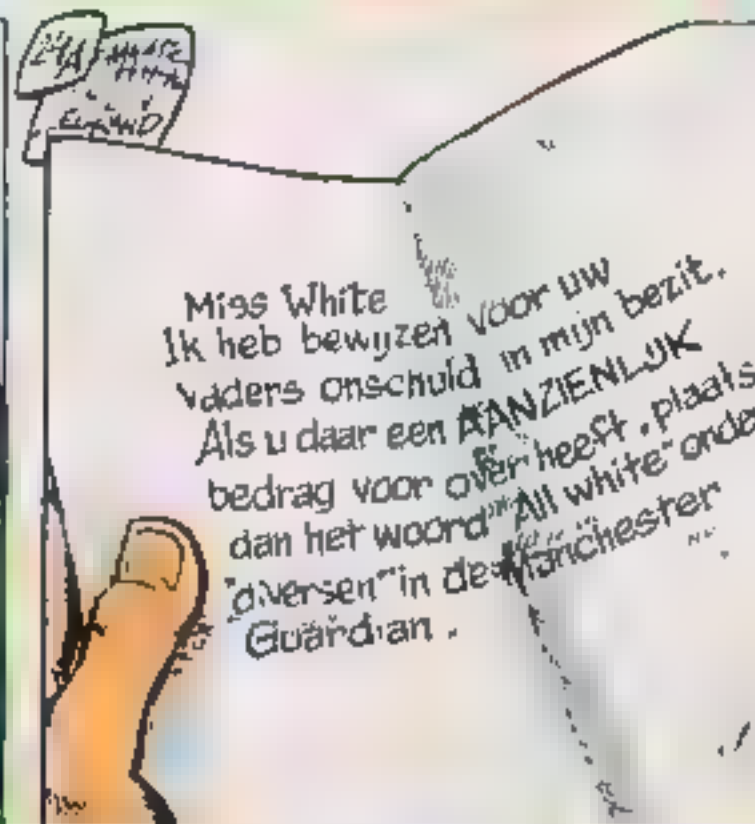 Miss White
Ik heb bewijzen voor uw
vaders onschuld in mijn bezit.
Als u daar een AANZIENLIJK
bedrag voor over heeft, plaats
dan het woord "All white" onde
"diversen" in de Manchester
Guardian.